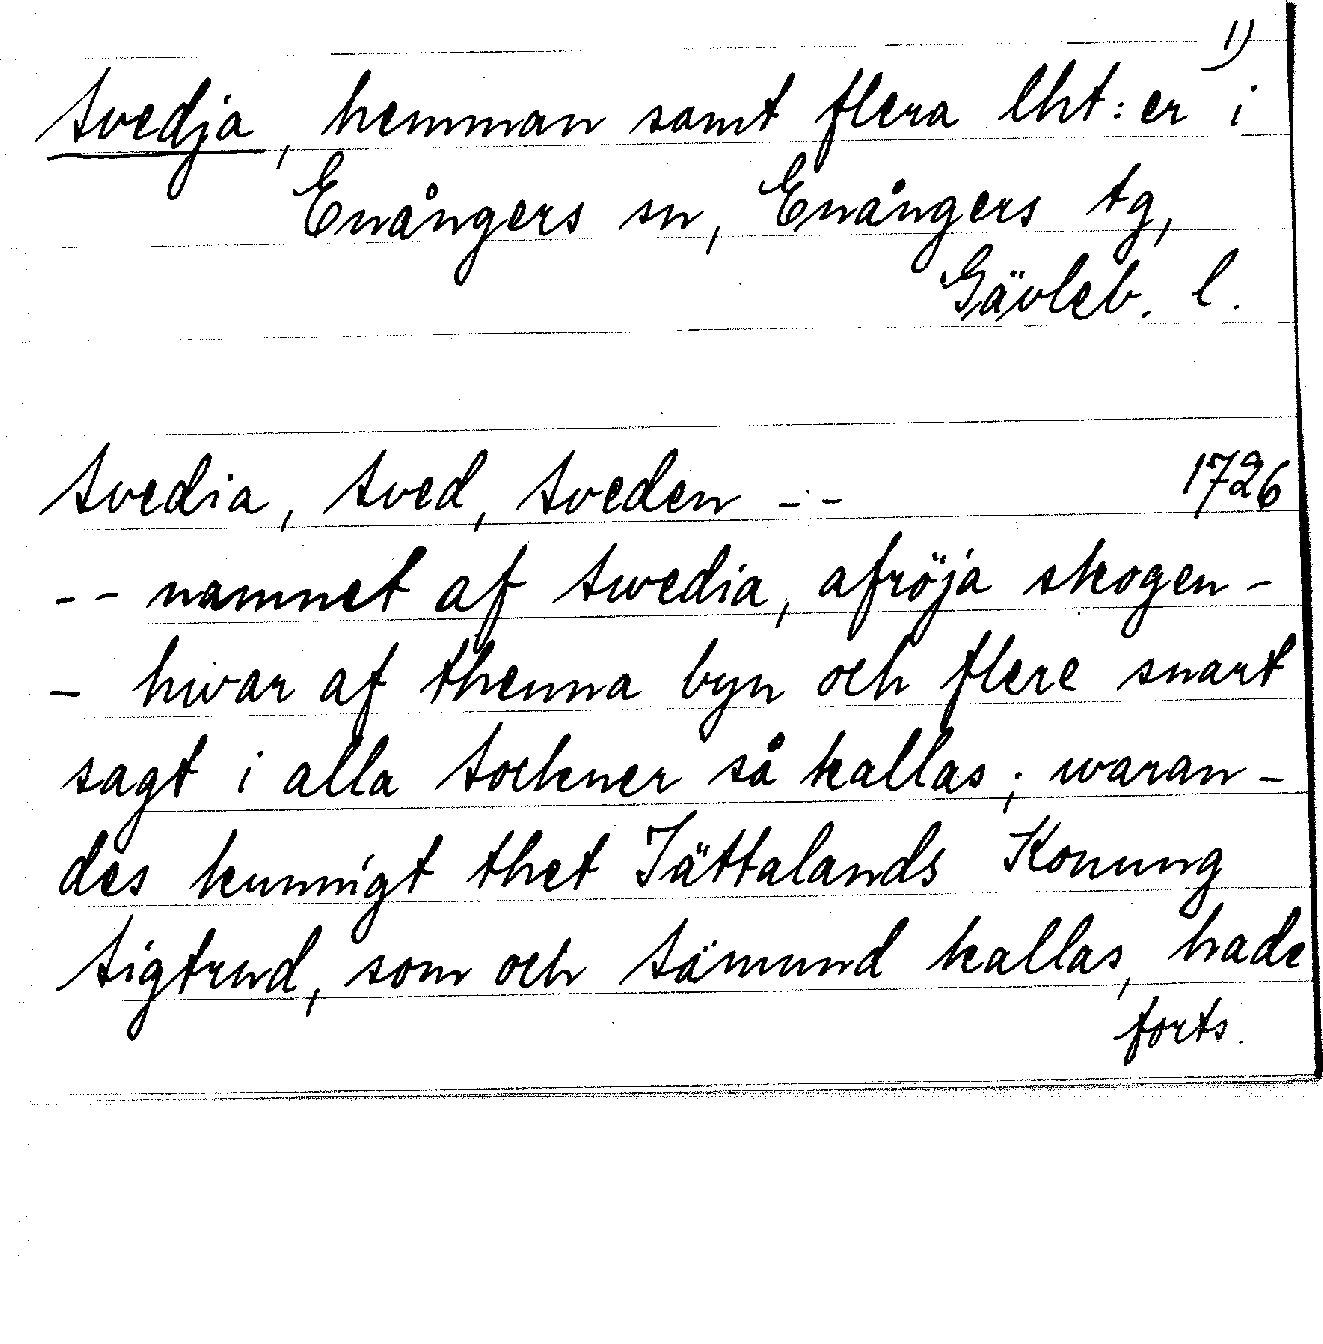 1)
Svedja, hemman samt flera lht:er i
Enångers sn, Enångers tg,
Gävleb. l.
Svedia, Sved, Sveden -- 1726
-- namnet af Swedia, afröja skogen -
- hwar af thenna byn och flere snart
sagt i alla Sockner så kallas; waran-
des kunnigt thet Jättalands Konung
Sigtrud, som och Sämund kallas, hade
forts.